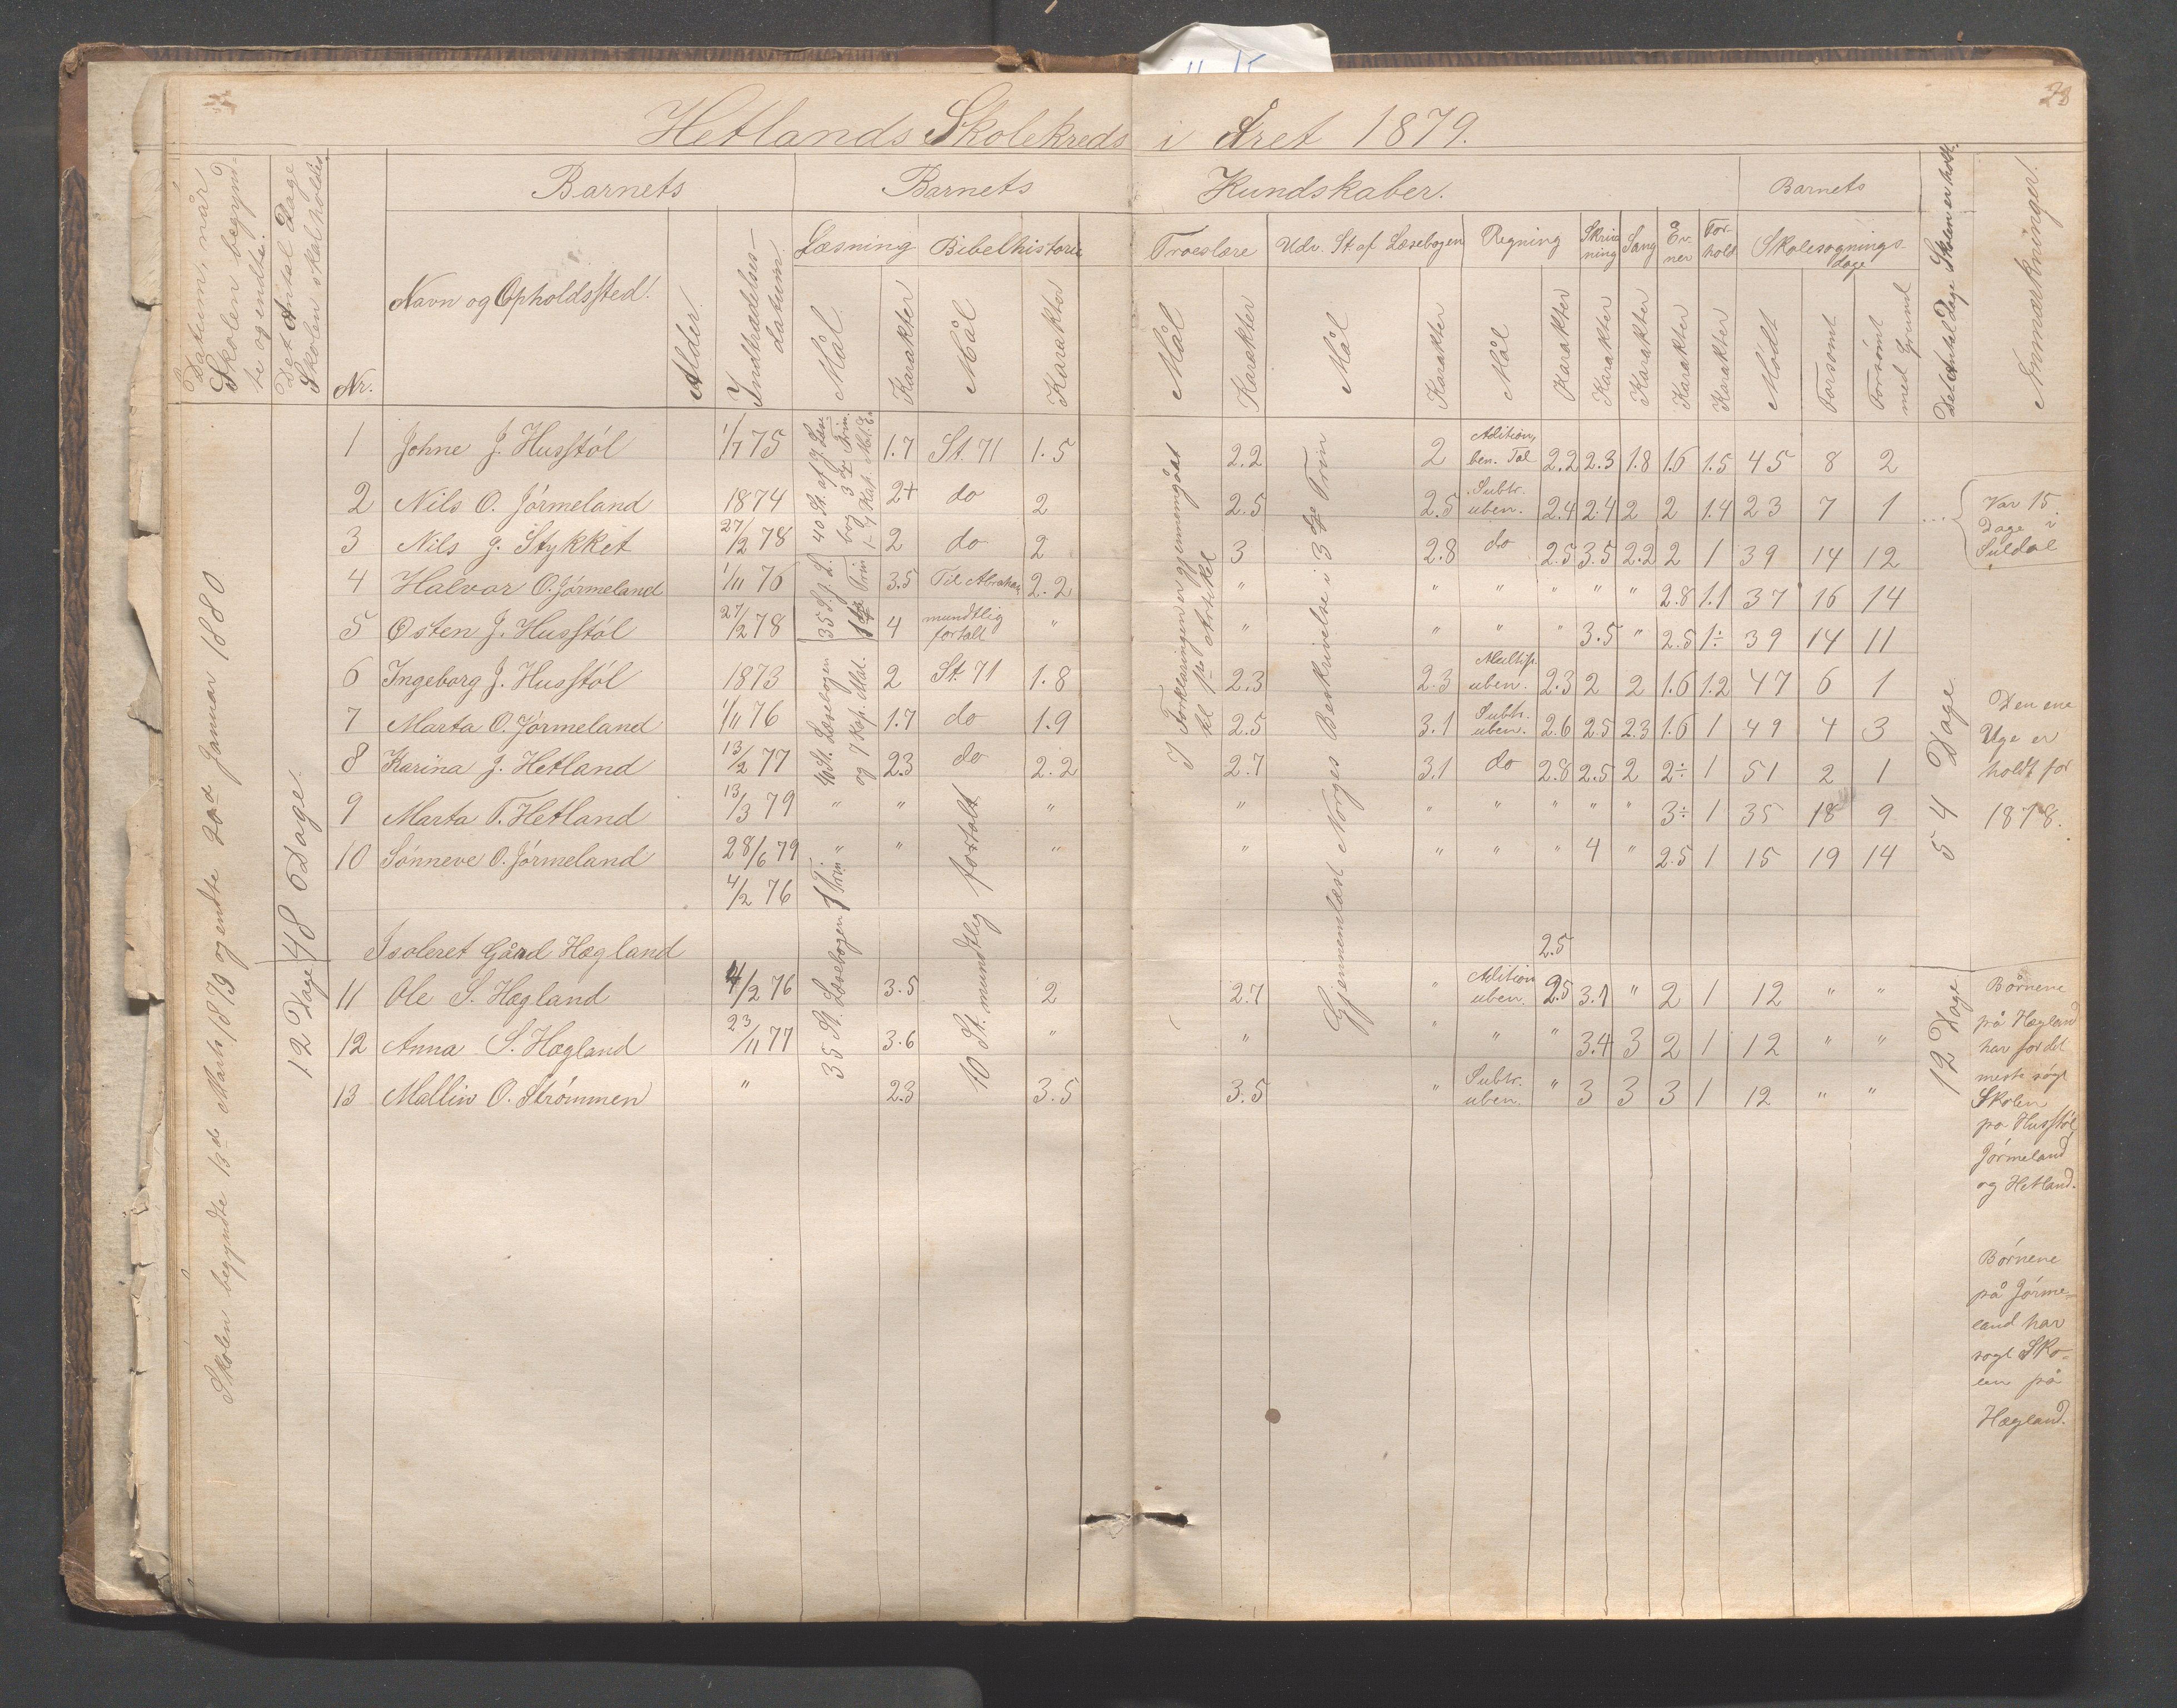 28
Hetlands Skolekreds i Året 1879.
Datum, når Skolen begynd-
te og endte.
Det Antal Dage
Skolen skal holdes.
Nr.
Barnets
Navn og Opholdssted.
Alder.
Indtrædelses-
datum.
Barnets Kundskaber.
Læsning
Mål
Karakter
Bibelhistorie
Mål
Karakter
Troeslære
Mål
Karakter
Udv. St. af Læsebogen
Mål
Karakter
Regning
Mål
Karakter
Skriv
ning
Karakter
Sang
Karakter
Ev-
ner
Karakter
For-
hold
Karakter
Barnets
Skolesøgnings-
dage
Mødt
Forsømt
Forsømt
med Grund
Det Antal Dage Skolen er holdt.
Anmærkninger.
Skolen begyndte 13de Marts 1879 og endte 20de Januar 1880
48 Dage.
12 Dage
1 Johne J. Husstøl 1/11 75 1.7 St. 71 1.5 2.2 2 Adition, ben. Tal 2.2 2.3 1.8 1.6 1.5 45 8 2
2 Nils O. Jørmeland 1874 2+ do 2 2.5 2.5 Subtr. uben. 2.4 2.4 2 2 1.4 23 7 1
3 Nils J. Stykket 27/2 78 2 do 2 3 2.8 do 2.5 3.5 2.2 2 1 39 14 12
4 Halvor O. Jørmeland 1/11 76 3.5 Til Abraham 2.2 " " " " " " 2.8 1.1 37 16 14
5 Østen J. Husstøl 27/2 78 4 mundtlig fortalt " " " " " 3.5 " 2.5 1÷ 39 14 11
6 Ingeborg J. Husstøl 1873 2 St. 71 1.8 2.3 2.3 Multip. uben. 2.3 2 2 1.6 1.2 47 6 1
7 Marta O. Jørmeland 1/11 76 1.7 do 1.9 2.5 3.1 Subtr. uben. 2.6 2.5 2.3 1.6 1 49 4 3
8 Karina J. Hetland 13/2 77 2.3 do 2.2 2.7 3.1 do 2.8 2.5 2 2÷ 1 51 2 1
9 Marta T. Hetland 13/3 79 " " " " " " " " " 3÷ 1 35 18 9
10 Sønneve O. Jørmeland 28/6 79 " " " " " " " 4 " 2.5 1 15 19 14
4/2 76
Isoleret Gård Hægland
2.5
11 Ole S. Hægland 4/2 76 3.5 2 2.7 " Adition uben. 2.5 3.1 " 2 1 12 " "
12 Anna S. Hægland 23/11 77 3.6 " " " " " 3.4 3 2 1 12 " "
13 Mallin O. Strømmen " 2.3 3.5 3.5 " Subtr. uben. " 3 3 3 1 12 " "
40 St. af J. Læse
bog 3die Trin.
1-7 Kap. Mat. E.
35 St. J. L.
1ste Trin
40 St. Læsebogen
og 7 Kap. Mat.
35 St. Læsebogen 1 Trin
10 St. mundtlig fortalt
I Forklaringen er gjennemgået
til 1ste Artikel
Gjennemlæst Norges Beskrivelse i 3die Trin
54 Dage
12 Dage
Var 15
Dage i
Suldal
Den ene
Uge er
holdt for
1878.
Børnene
på Hægland
har for det
meste søgt
Skolen
på Husstøl
Jørmeland
og Hetland.
Børnene
på Jørme-
land har
søgt Sko-
len på
Hægland.